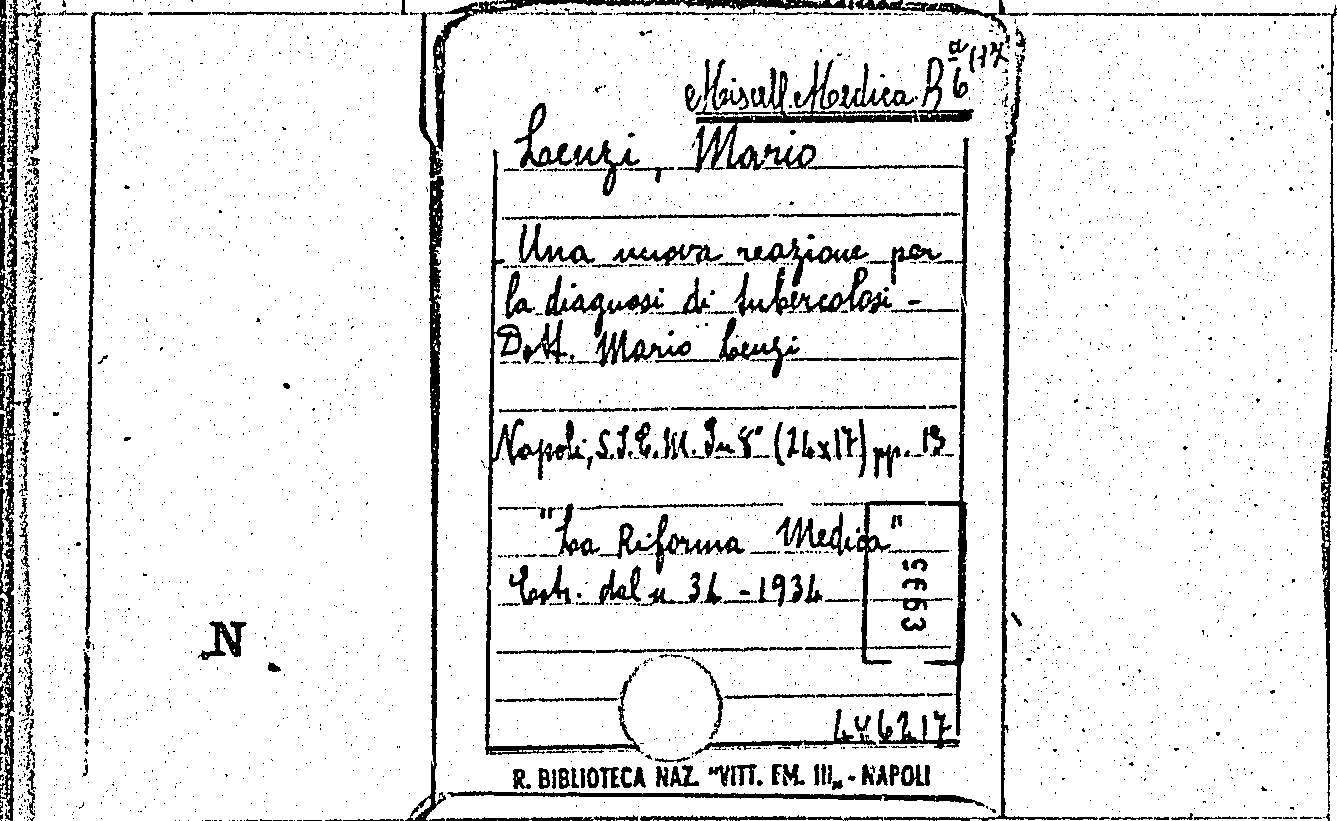 Miscell. Medica. B a/6 (17
Lenzi, Mario
Una nuova reazione per
la diagnosi di tubercolosi -
Dott. Mario Lenzi
Napoli, S.I.E.M. In 8° (24x17) pp. 13
"La Riforma Medica"
Estr. dal n 34 - 1934
N.
R. BIBLIOTECA NAZ. "VITT. EM. III„ - NAPOLI